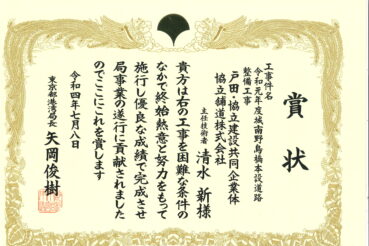 賞状
工事件名
令和元年度城南野鳥橋本設道路
整備工事
戸田・協立建設共同企業体
協立舗道株式会社
主任技術者 清水 新様
貴方は右の工事を困難な条件の
なかで終始熱意と努力をもって
施行し優良な成績で完成させ
局事業の遂行に貢献されました
のでここにこれを賞します
令和四年七月八日
東京都港湾局長 矢岡俊樹